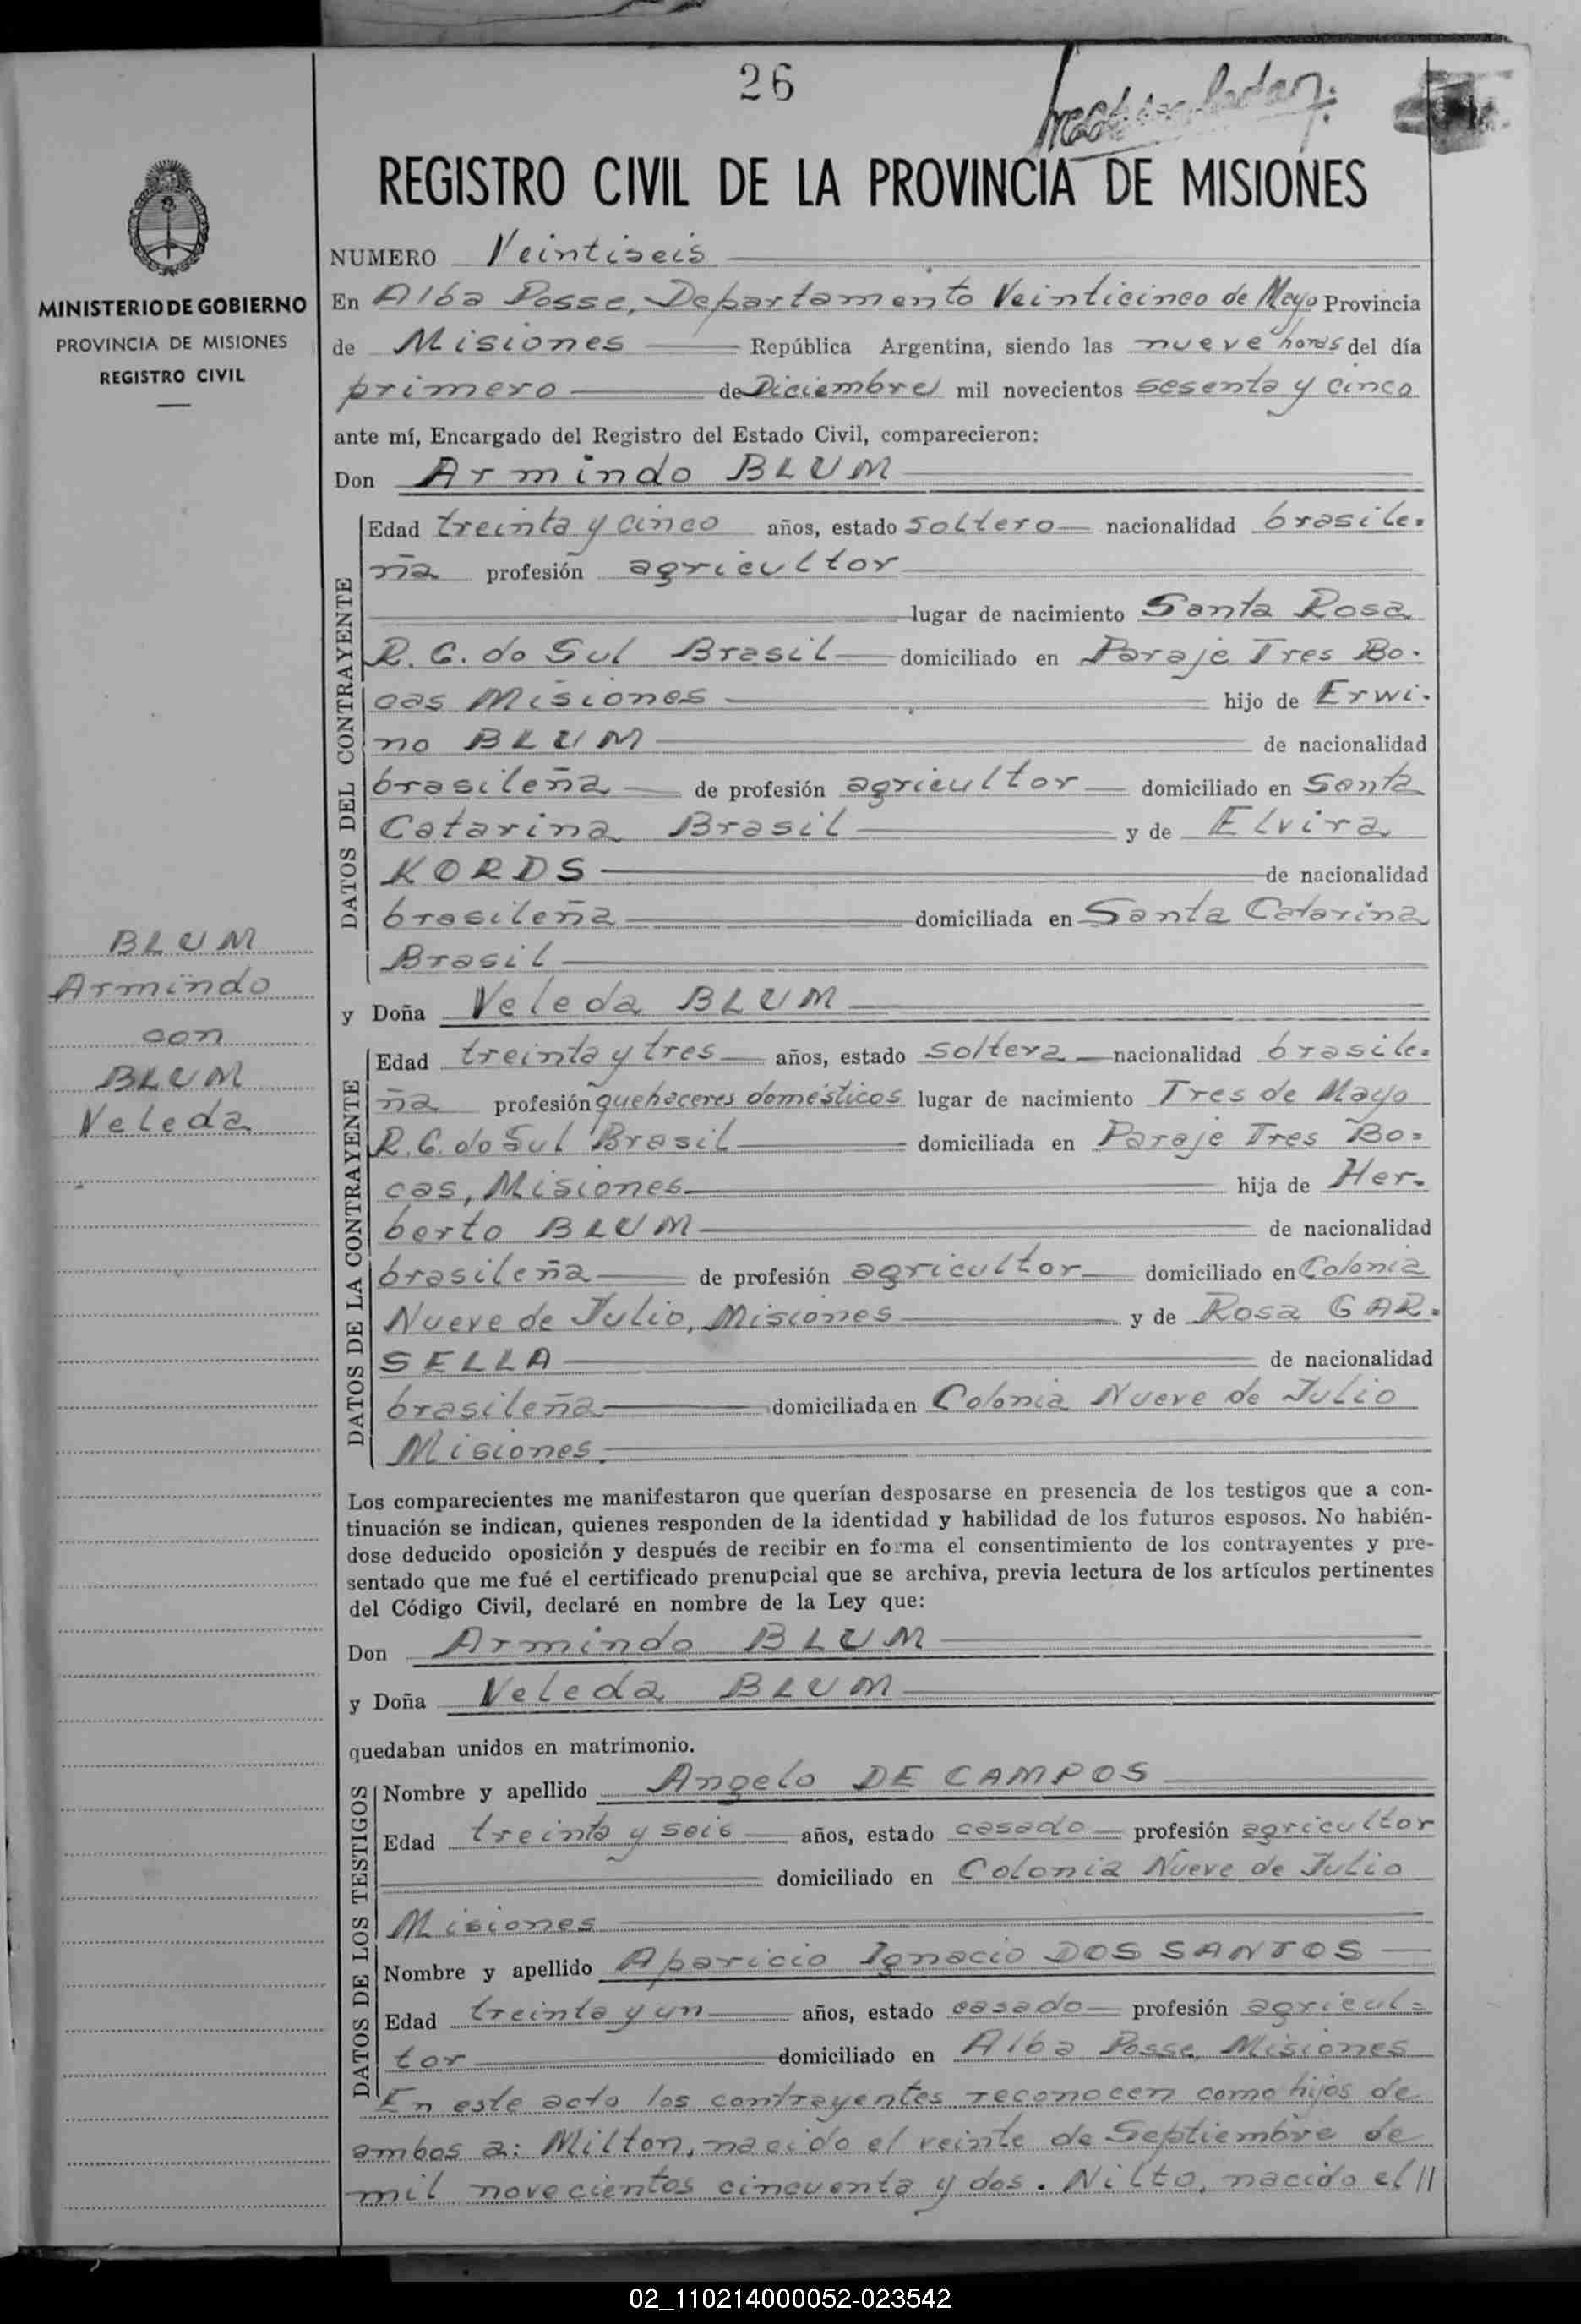 26
REGISTRO CIVIL DE LA PROVINCIA DE MISIONES
MINISTERIO DE GOBIERNO
PROVINCIA DE MISIONES
REGISTRO CIVIL
BLUM
Armindo
con
BLUM
Veleda
NUMERO Veintiseis
En Alba Posse, Departamento Veinticinco de Mayo Provincia
de Misiones República Argentina, siendo las nueve horas del día
primero de Diciembre mil novecientos sesenta y cinco
ante mí, Encargado del Registro del Estado Civil, comparecieron:
Don Armindo BLUM
DATOS DEL CONTRAYENTE
Edad treinta y cinco años, estado soltero nacionalidad brasile-
ña profesión agricultor
lugar de nacimiento Santa Rosa
R. G. do Sul Brasil domiciliado en Paraje Tres Bo-
cas Misiones hijo de Erwi-
no BLUM de nacionalidad
brasileña de profesión agricultor domiciliado en Santa
Catarina Brasil y de Elvira
KORDS de nacionalidad
brasileña domiciliada en Santa Catarina
Brasil
y Doña Veleda BLUM
DATOS DE LA CONTRAYENTE
Edad treinta y tres años, estado soltera nacionalidad brasile-
ña profesión quehaceres domésticos lugar de nacimiento Tres de Mayo
R. G. do Sul Brasil domiciliada en Paraje Tres Bo=
cas, Misiones hija de Her-
berto BLUM de nacionalidad
brasileña de profesión agricultor domiciliado en Colonia
Nueve de Julio, Misiones y de Rosa GAR=
SELLA de nacionalidad
brasileña domiciliada en Colonia Nueve de Julio
Misiones.
Los comparecientes me manifestaron que querían desposarse en presencia de los testigos que a con-
tinuación se indican, quienes responden de la identidad y habilidad de los futuros esposos. No habién-
dose deducido oposición y después de recibir en forma el consentimiento de los contrayentes y pre-
sentado que me fué el certificado prenupcial que se archiva, previa lectura de los artículos pertinentes
del Código Civil, declaré en nombre de la Ley que:
Don Armindo BLUM
y Doña Veleda BLUM
quedaban unidos en matrimonio.
DATOS DE LOS TESTIGOS
Nombre y apellido Angelo DE CAMPOS
Edad treinta y seis años, estado casado profesión agricultor
domiciliado en Colonia Nueve de Julio
Misiones
Nombre y apellido Aparicio Ignacio DOS SANTOS
Edad treinta y un años, estado casado profesión agricul=
tor domiciliado en Alba Posse, Misiones
En este acto los contrayentes reconocen como hijos de
ambos a: Milton, nacido el veinte de Septiembre de
mil novecientos cincuenta y dos. Nilto, nacido el //
02_110214000052-023542